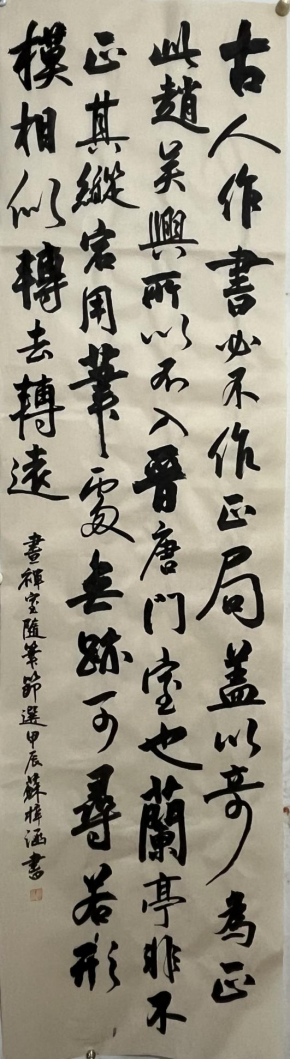 古人作書必不作正局蓋以奇為正
此趙吳興所以不入晉唐門室也蘭亭非不
正其縱宕用筆處無跡可尋若形
模相似轉去轉遠
畫禪室隨筆節選甲辰蘇樟涵書